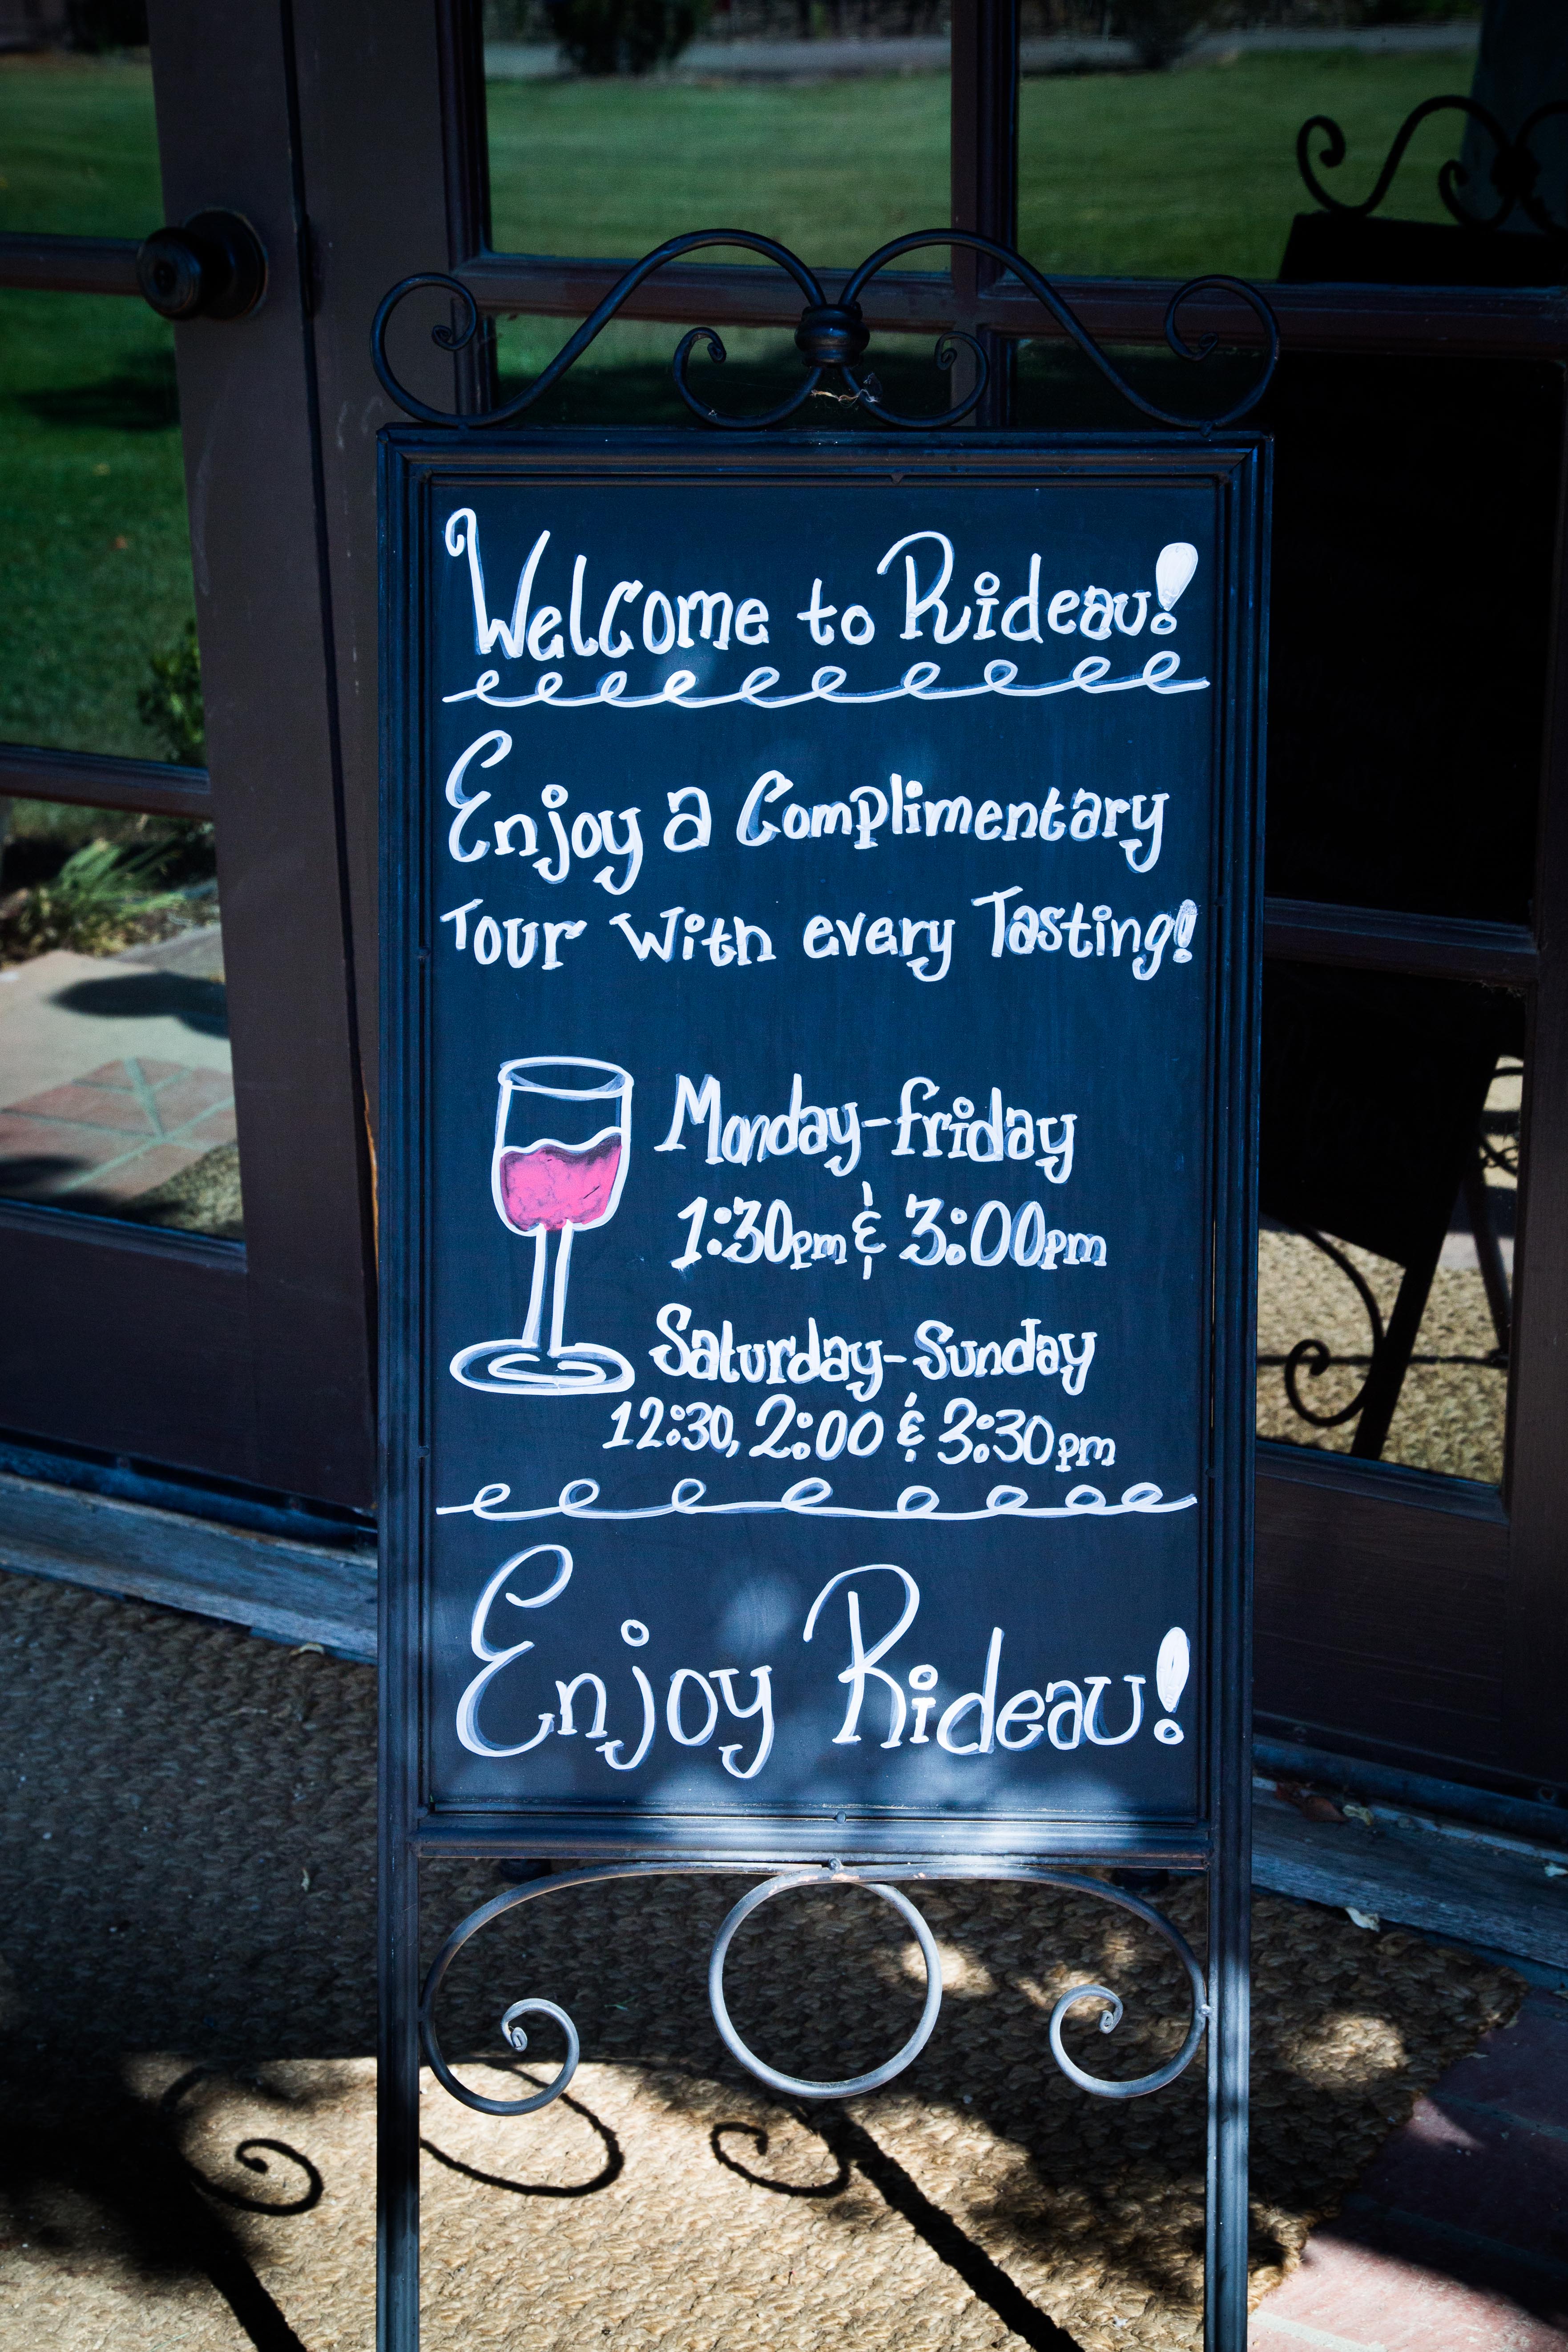 Welcome to Rideau!
Enjoy a Complimentary
Tour With every Tasting!
Monday-friday
1:30pm & 3:00pm
Saturday-Sunday
12:30, 2:00 & 3:30pm
Enjoy Rideau!